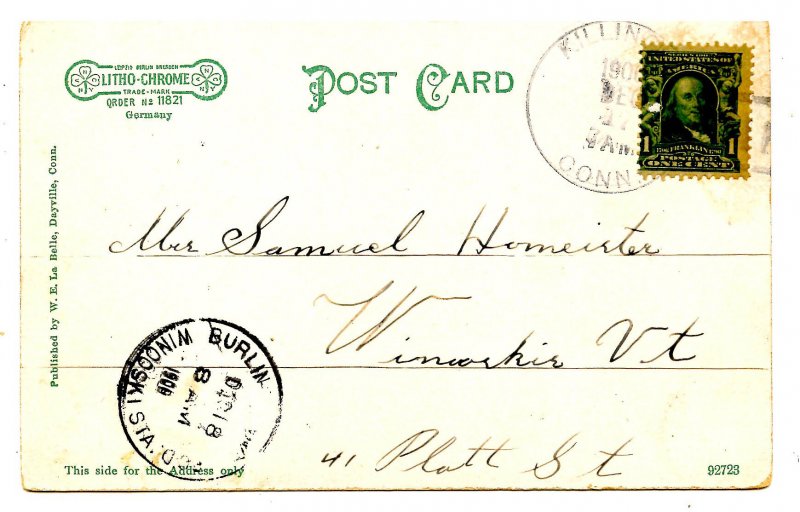 LEIPZIG BERLIN DRESDEN
LITHO-CHROME
TRADE-MARK
ORDER No 11821
Germany
POST CARD
KILLING
1908
DEC
17
3 AM
CONN.
SERIES 1902
UNITED STATES OF
AMERICA
1
1706 FRANKLIN 1790
POSTAGE
ONE CENT
1
Published by W. E. La Belle, Dayville, Conn.
Mrs Samuel Homeister
Winooski Vt
41 Platt St
WINOOSKI STA.
BURLIN
DEC 18
8 AM
1908
This side for the Address only
92723